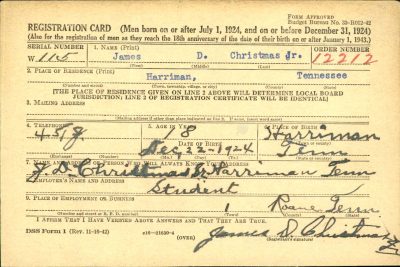 REGISTRATION CARD (Men born on or after July 1, 1924, and on or before December 31, 1924)
FORM APPROVED
Budget Bureau No. 33-R012-42
(Also for the registration of men as they reach the 18th anniversary of the date of their birth on or after January 1, 1943.)
SERIAL NUMBER
1. NAME (Print)
ORDER NUMBER
W 115
James D. Christmas Jr.
12212
2. PLACE OF RESIDENCE (Print)
Harriman, Tennessee
(Town, township, village, or city) (County) (State)
[THE PLACE OF RESIDENCE GIVEN ON LINE 2 ABOVE WILL DETERMINE LOCAL BOARD
JURISDICTION; LINE 2 OF REGISTRATION CERTIFICATE WILL BE IDENTICAL]
3. MAILING ADDRESS
[Mailing address if other than place indicated on line 2. If same, insert word same]
4. 5. AGE IN YEARS 6. PLACE OF BIRTH
18 Harriman
DATE OF BIRTH
Dec 22-1924 Tenn
7. NAME AND ADDRESS OF PERSON WHO WILL ALWAYS KNOW YOUR ADDRESS
J. D. Christmas Harriman Tenn
8. EMPLOYER'S NAME AND ADDRESS
Student
9. PLACE OF EMPLOYMENT OR BUSINESS
1 Roane Tenn.
(Number and street or R. F. D. number) (Town) (County) (State)
I AFFIRM THAT I HAVE VERIFIED ABOVE ANSWERS AND THAT THEY ARE TRUE.
DSS Form 1 (Rev. 11-16-42) 16-21630-4
James D. Christmas Jr.